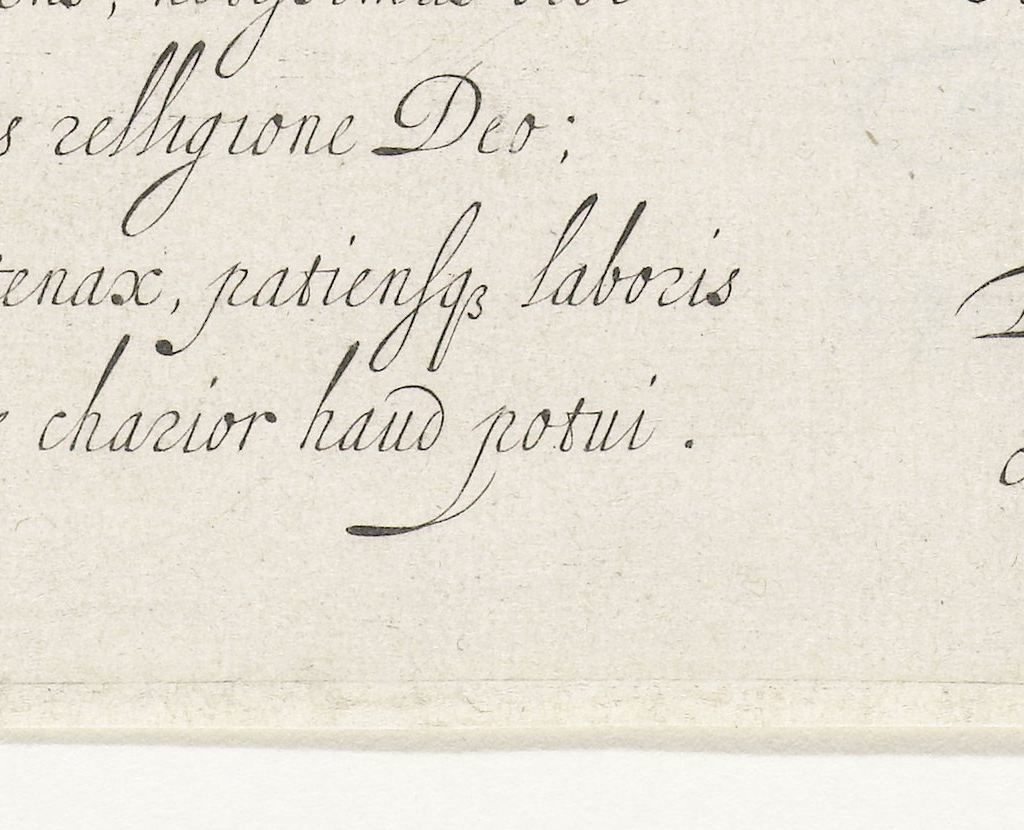 s relligione Deo;
tenax, patiensq; laboris
charior haud potui.